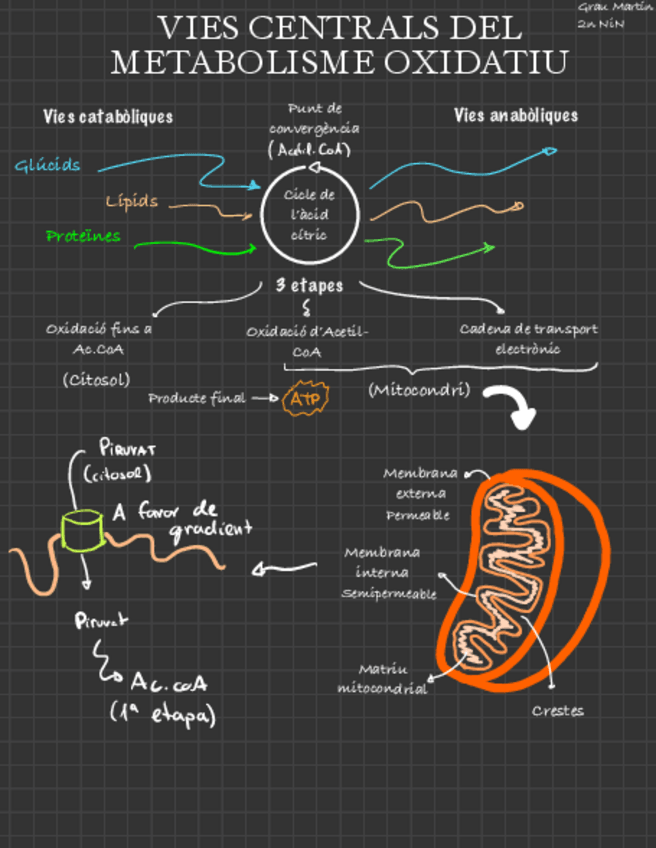 Grau Martin
2n NiN
VIES CENTRALS DEL
METABOLISME OXIDATIU
Vies catabòliques
Punt de
convergència
(Acetil.CoA)
Vies anabòliques
Glúcids
Lípids
Proteïnes
Cicle de
l'àcid
cítric
3 etapes
Oxidació fins a
Ac.CoA
(Citosol)
Oxidació d'Acetil-
CoA
Cadena de transport
electrònic
(Mitocondri)
Producte final
ATP
PIRUVAT
(citosol)
A favor de
gradient
Piruvat
Ac.coA
(1ª etapa)
Membrana
externa
Permeable
Membrana
interna
Semipermeable
Matriu
mitocondrial
Crestes